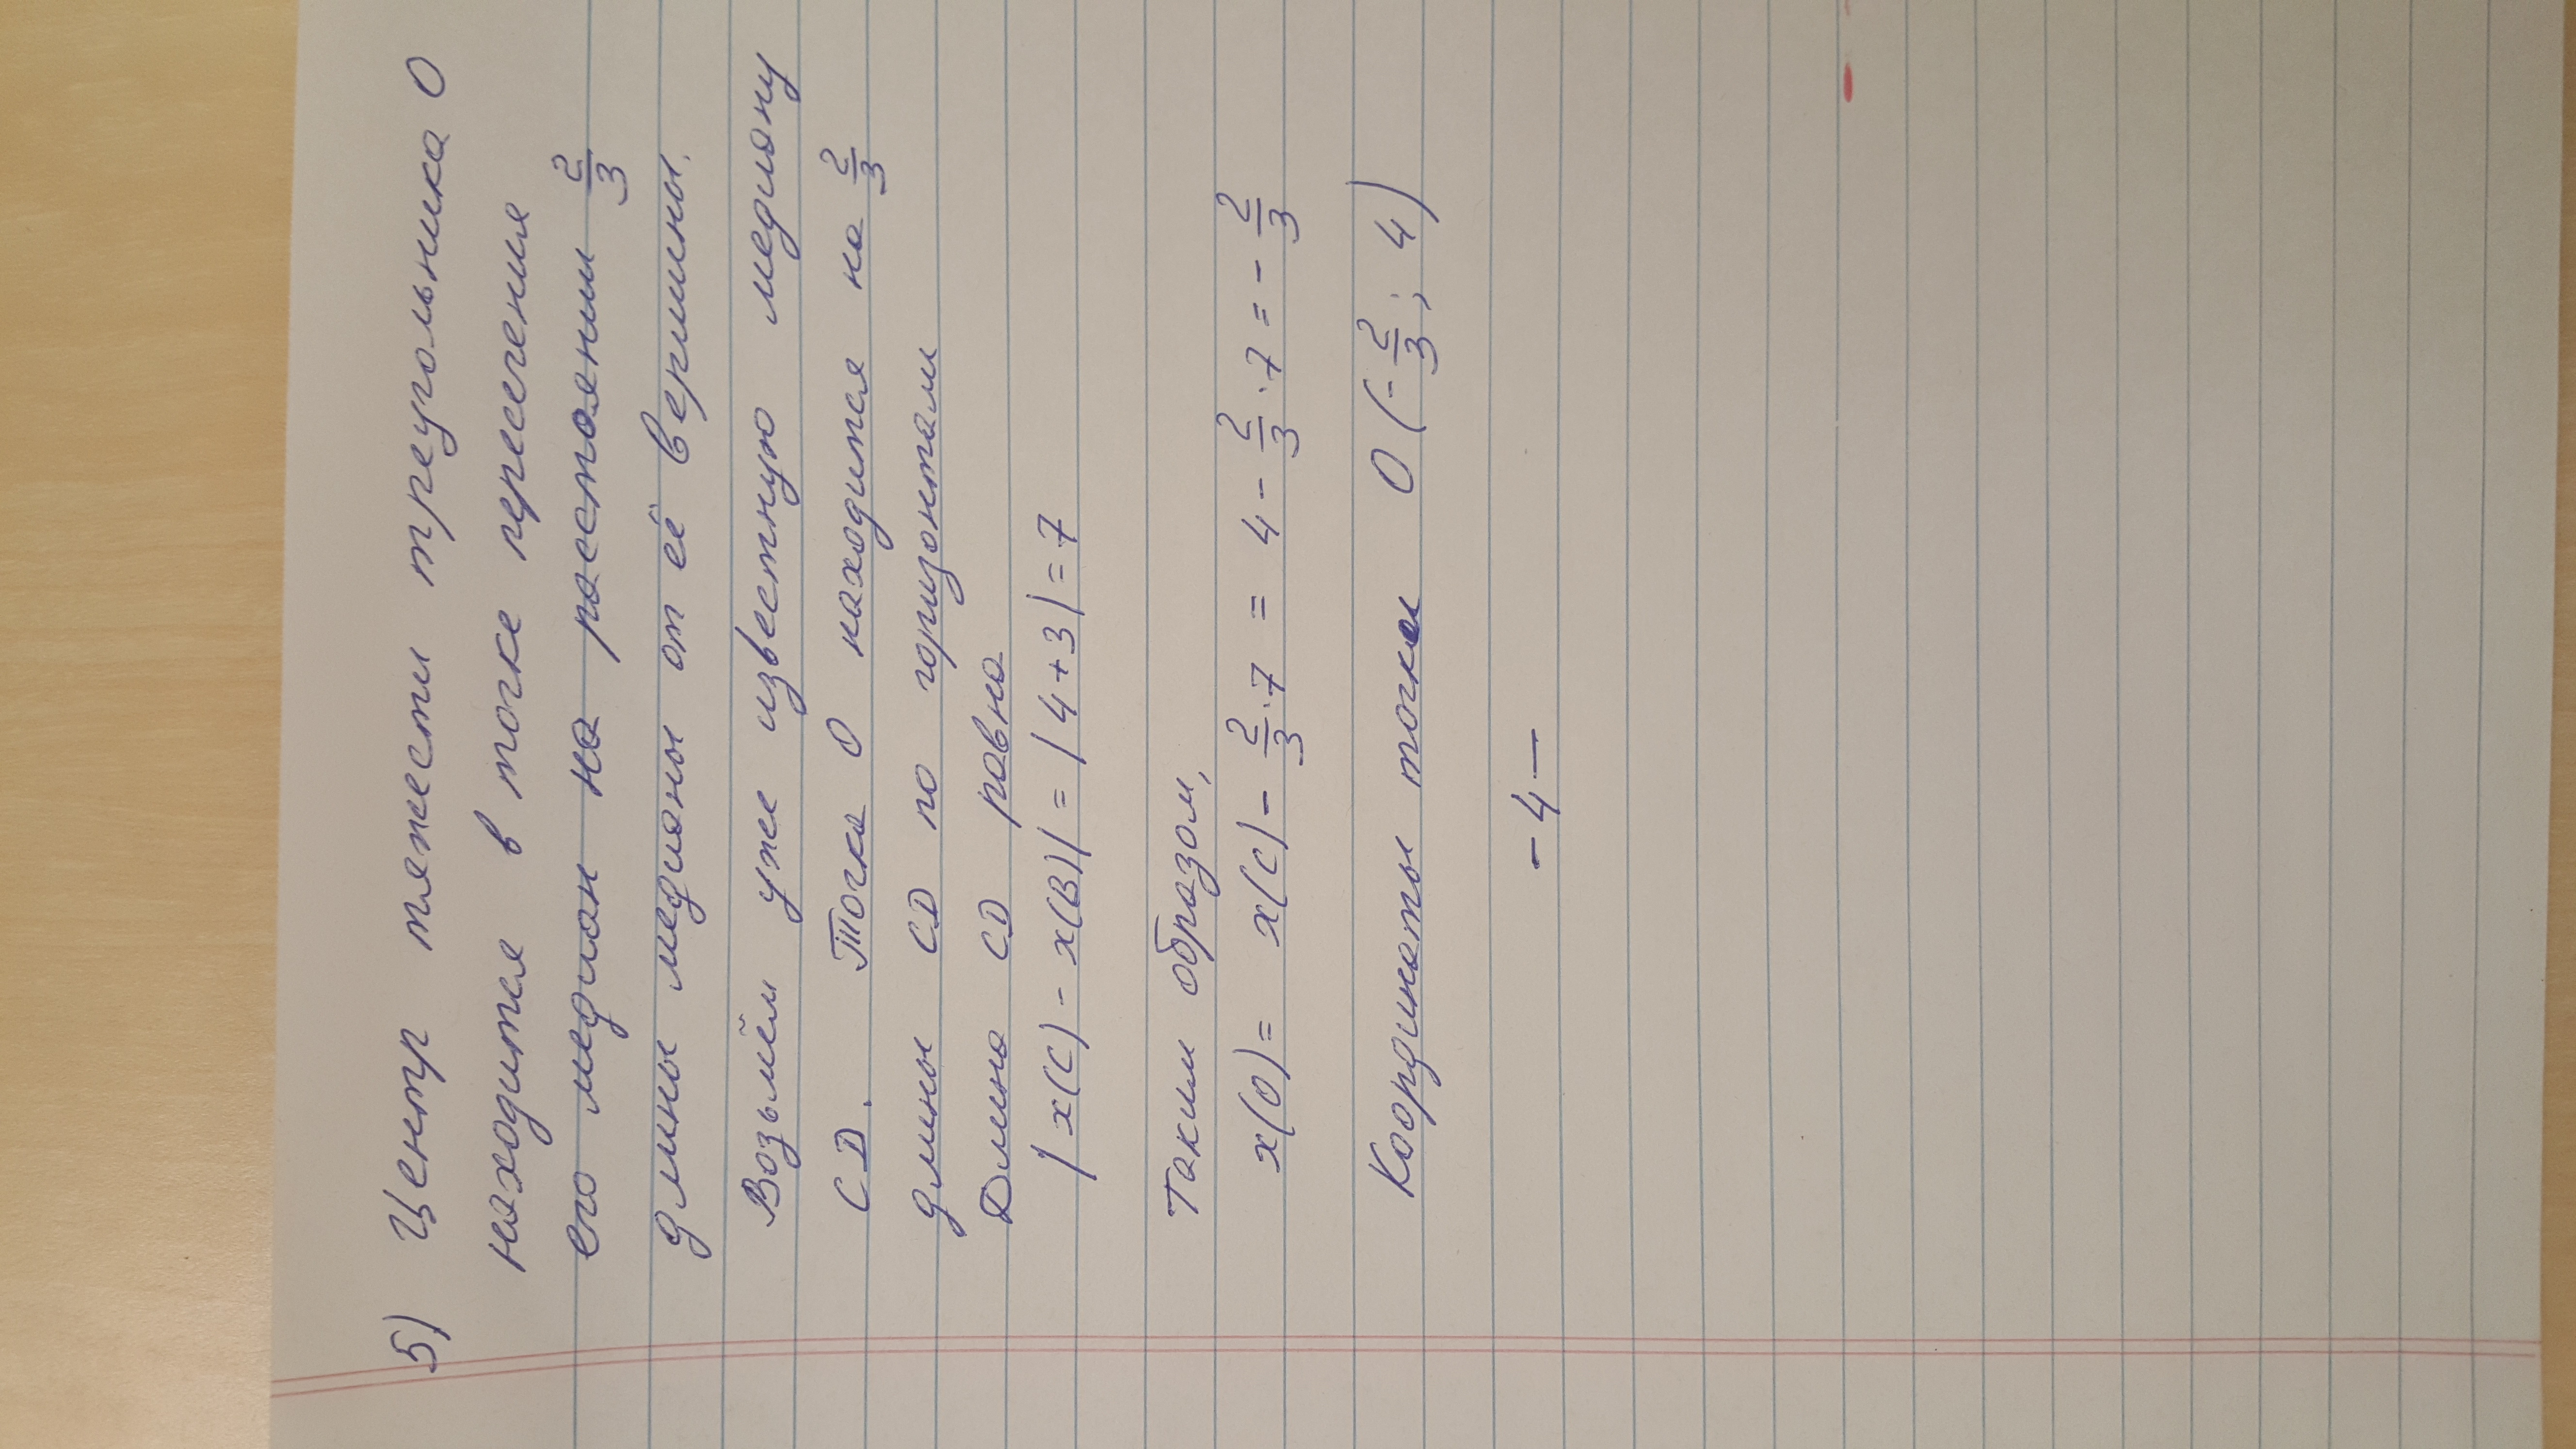 5) Центр тяжести треугольника O
находится в точке пересечения
его медиан на расстоянии 2/3
длины медианы от её вершины.
Возьмём уже известную медиану
CD. Точка O находится на 2/3
длины CD по горизонтали
Длина CD равна
|x(C) - x(B)| = |4+3| = 7
Таким образом,
x(O) = x(C) - 2/3 · 7 = 4 - 2/3 · 7 = - 2/3
Координаты точки O (- 2/3 ; 4)
- 4 -